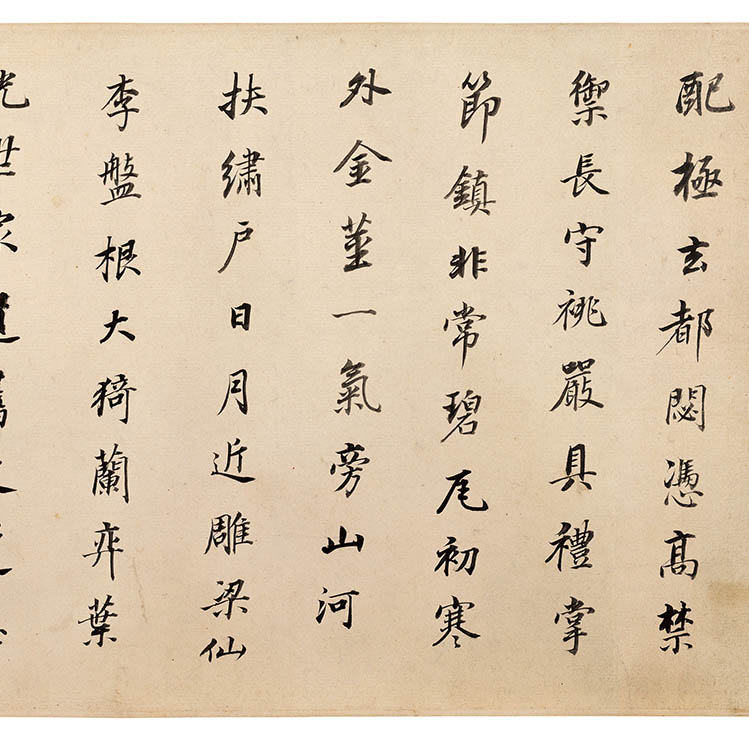 配極玄都閟憑高禁
禦長守祧嚴具禮掌
節鎮非常碧瓦初寒
外金莖一氣旁山河
扶繡戶日月近雕梁仙
李盤根大猗蘭弈葉